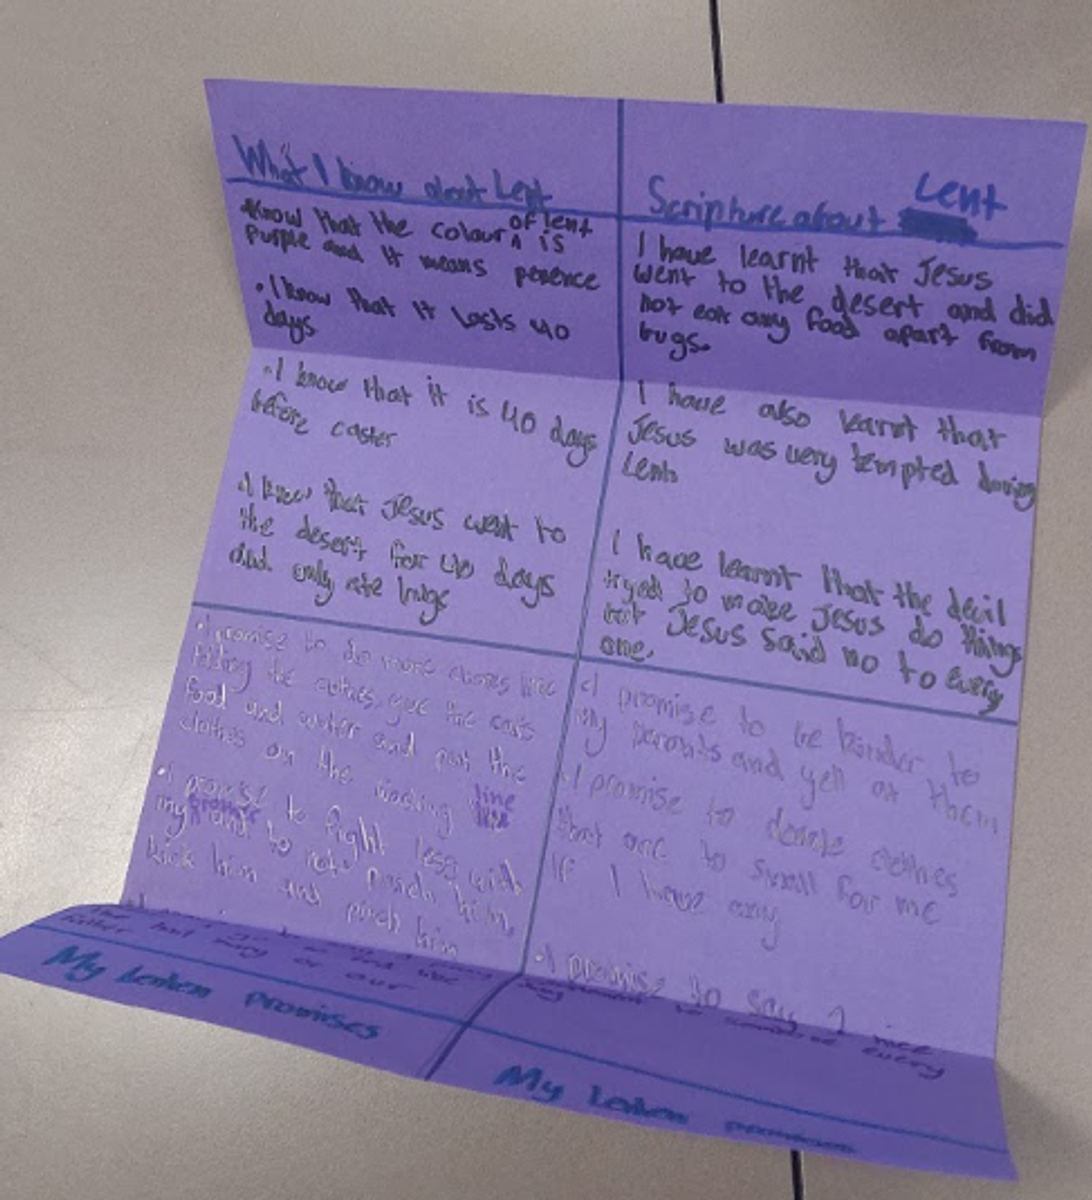 What I know about Lent
•Know that the colour of lent is
purple and it means penence
•I know that it lasts 40
days
•I know that it is 40 days
before easter
•I know that Jesus went to
the desert for 40 days
and only ate bugs
Scripture about Lent
I have learnt that Jesus
went to the desert and did
not eat any food apart from
bugs.
I have also learnt that
Jesus was very tempted during
Lent
I have learnt that the devil
tryed to make Jesus do things
but Jesus said no to every
one.
•I promise to do more chores like
folding the clothes, give the cats
food and water and put the
clothes on the washing line
•I promise to fight less with
my and to not punch him,
kick him and pinch him
father hail mary or our
My Lenten promises
•I promise to be kinder to
my parents and yell at them
•I promise to donate clothes
that are to small for me
if I have any
•I promise to say 2 nice
to someone every
My Lenten promises